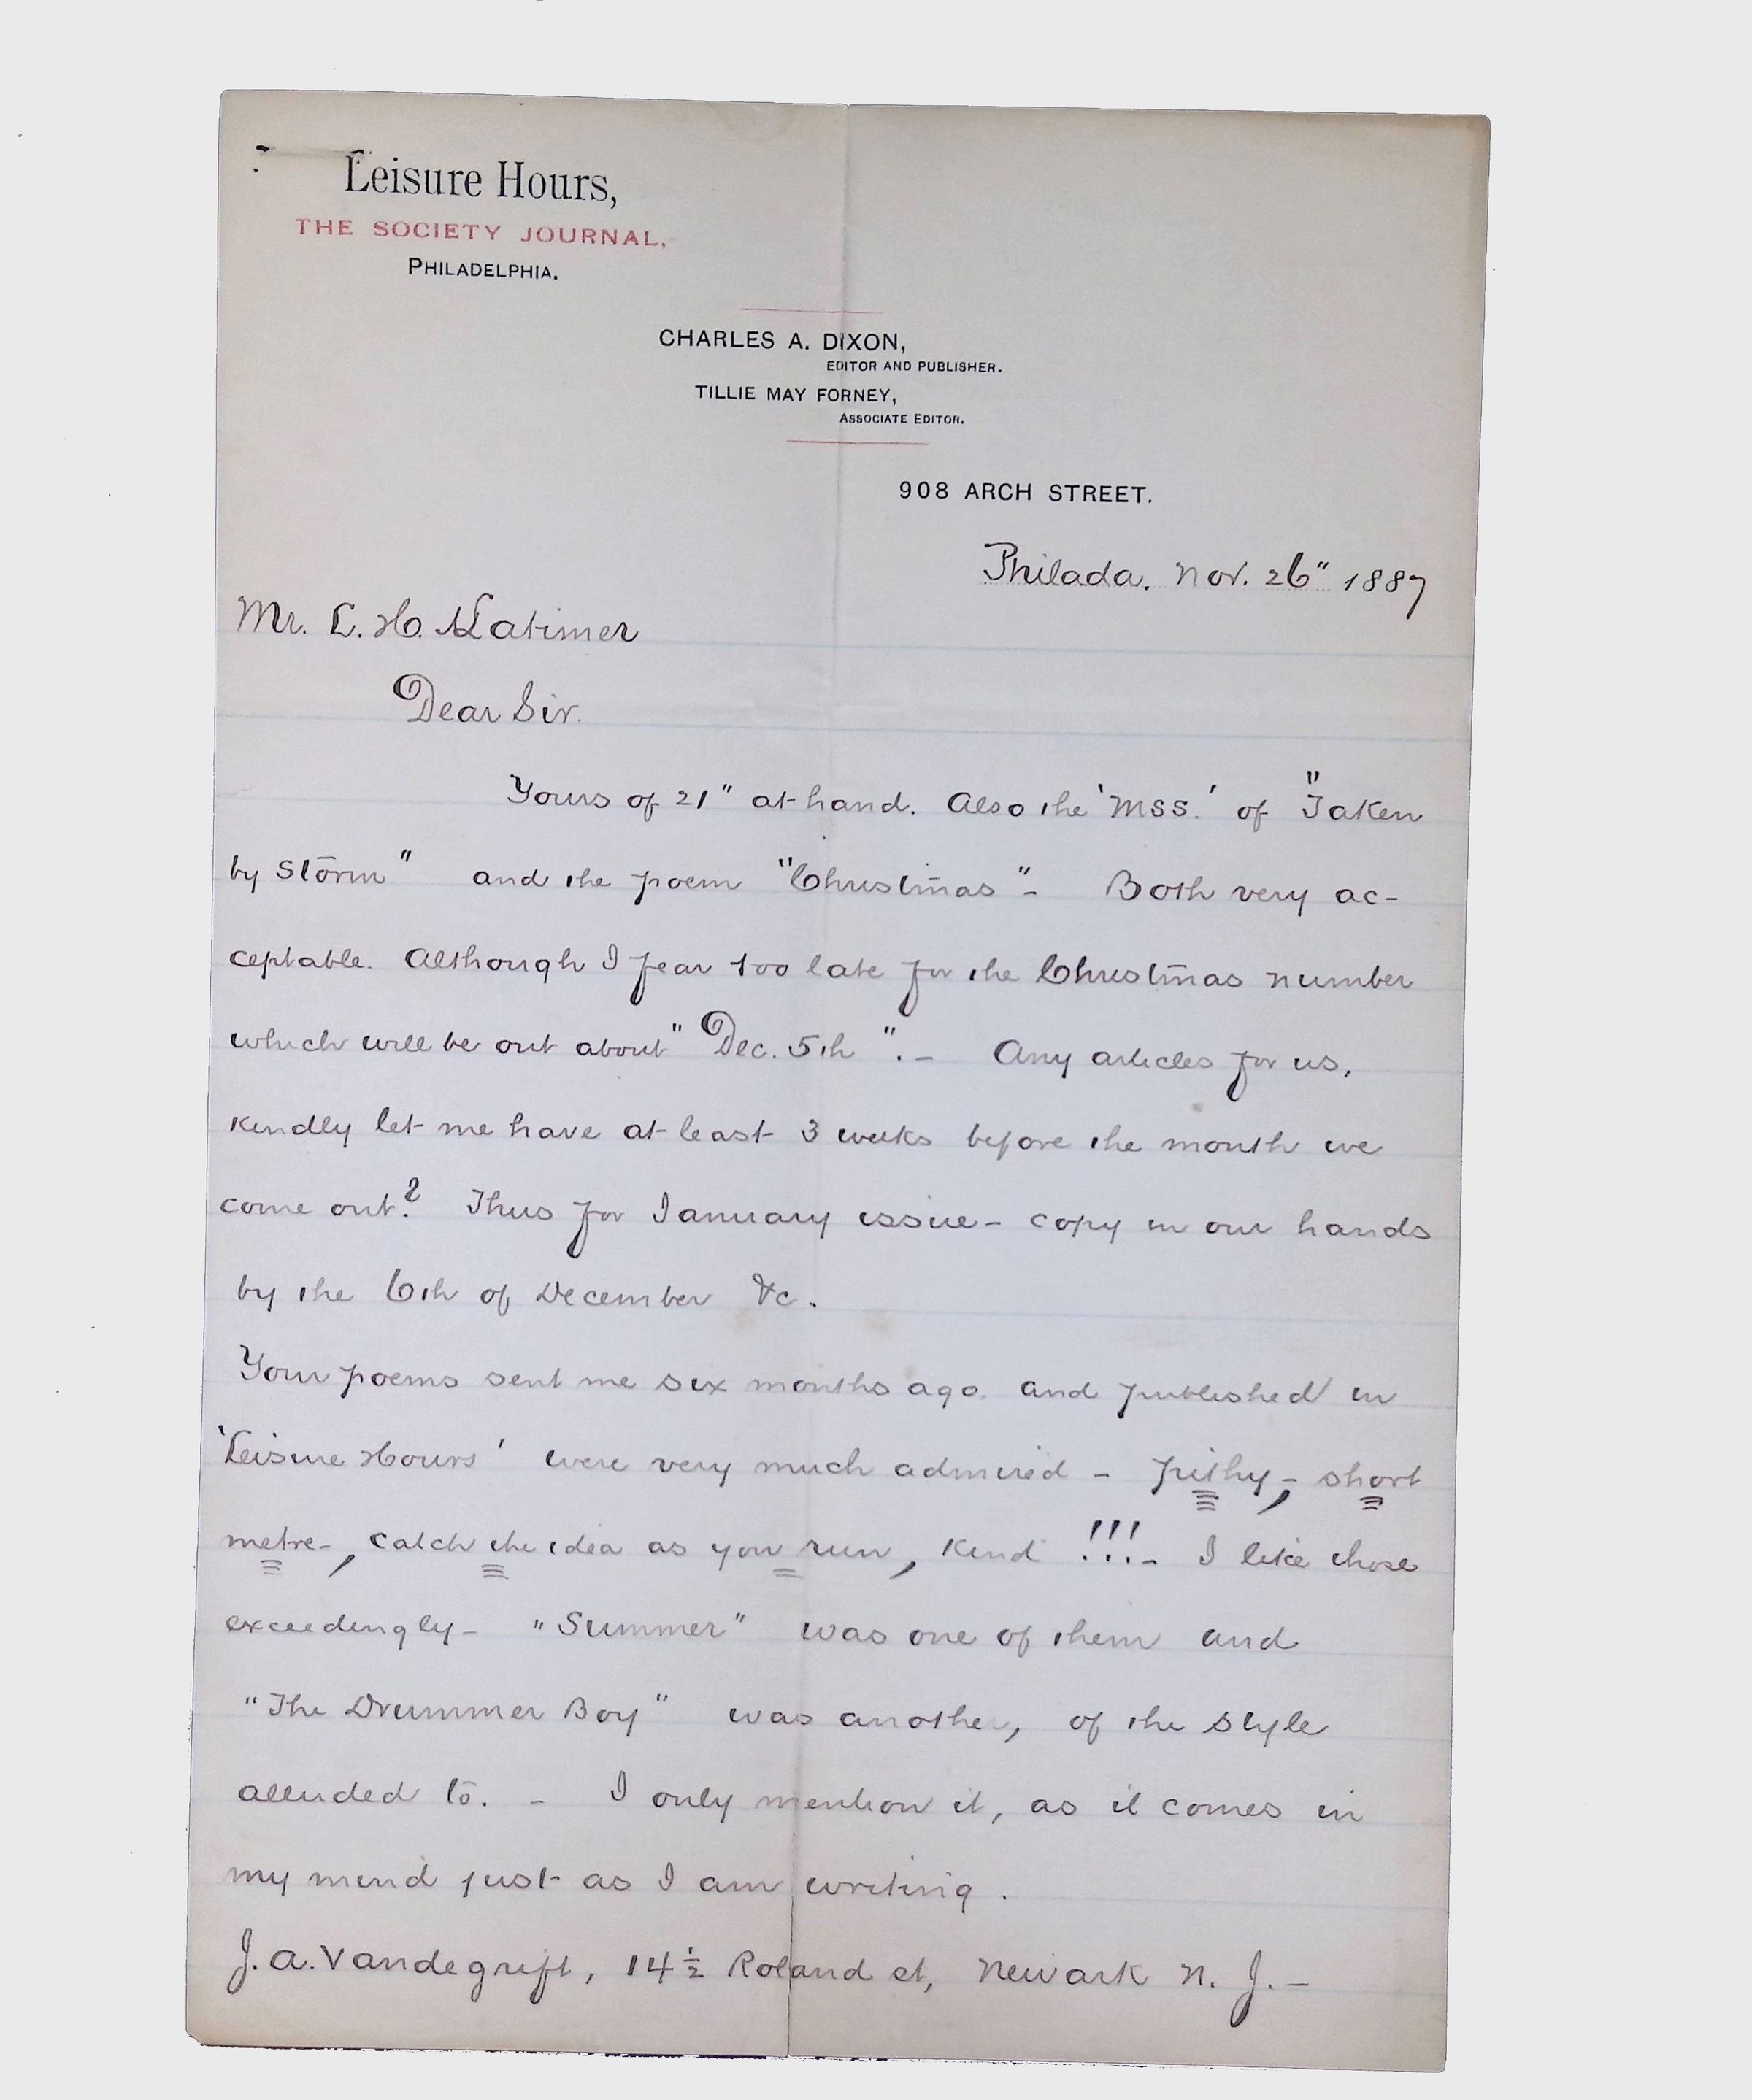 Leisure Hours,
THE SOCIETY JOURNAL,
PHILADELPHIA.
CHARLES A. DIXON,
EDITOR AND PUBLISHER.
TILLIE MAY FORNEY,
ASSOCIATE EDITOR.
908 ARCH STREET.
Philada. Nov. 26" 1887
Mr. L. H. Latimer
Dear Sir.
Yours of 21" at hand. Also the 'MSS.' of "Taken
by Storm" and the poem "Christmas" - Both very ac-
ceptable. Although I fear too late for the Christmas number
which will be out about "Dec. 5th". - Any articles for us,
kindly let me have at least 3 weeks before the month we
come out? Thus for January issue - copy in our hands
by the 6th of December &c.
Your poems sent me six months ago. and published in
'Leisure Hours' were very much admired - pithy, - short
metre-, catch the idea as you run, kind !!!- I like those
exceedingly - "Summer" was one of them and
"The Drummer Boy" was another, of the style
alluded to. - I only mention it, as it comes in
my mind just as I am writing.
J. A. Vandegrift, 14½ Roland st, Newark N. J. -